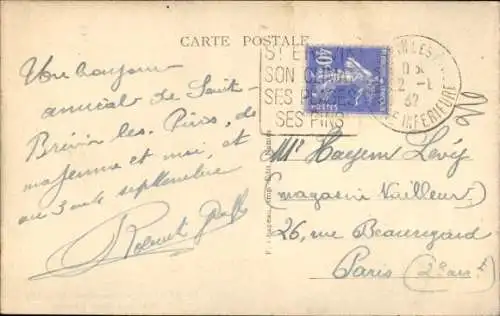 CARTE POSTALE
Un bonjour
amical de Saint-
Brévin les Pins, de
ma femme et moi, et
au 3 ou 4 septembre
ST BREVIN
SON CLIMAT
SES PLAGES
SES PINS
40c
POSTES
LES PINS
37
LOIRE INFERIEURE
Mr Hayem Lévy
(magasin Vailleur)
26, rue Beauregard
Paris (2e arr.)